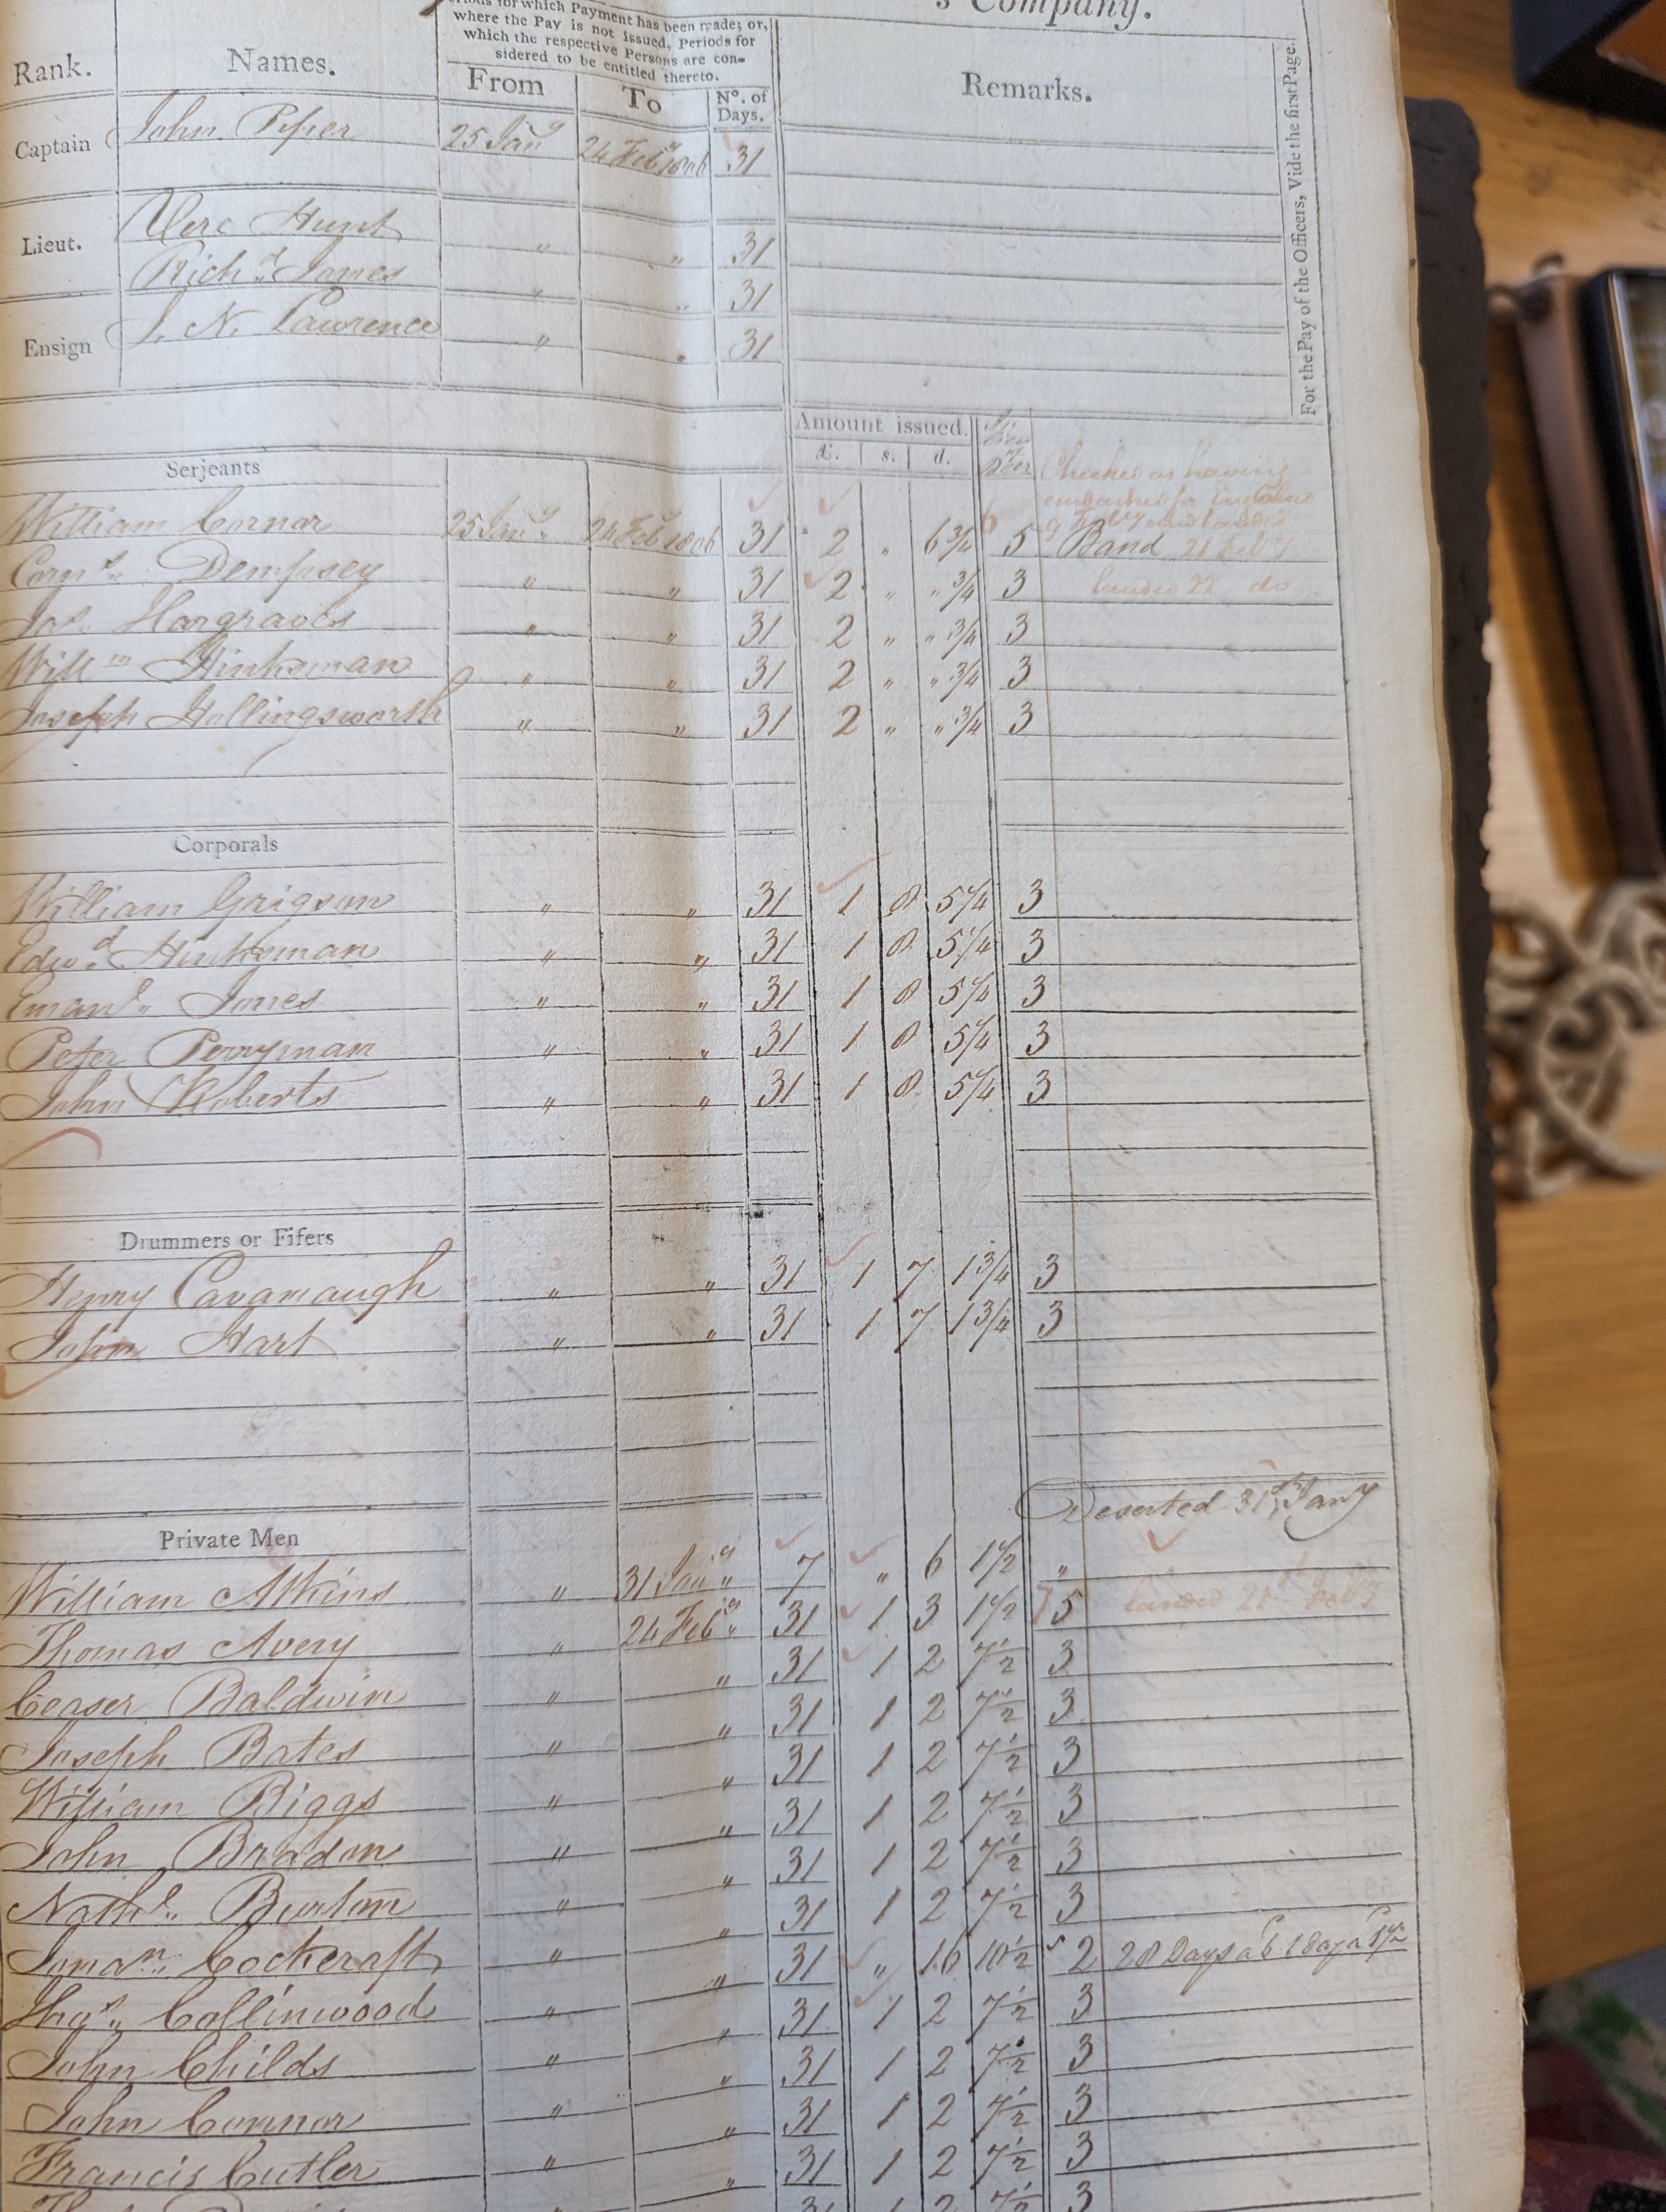 's Company.
Periods for which Payment has been made; or,
where the Pay is not issued, Periods for
which the respective Persons are con-
sidered to be entitled thereto.
Rank. Names. From To No. of Days. Remarks.
For the Pay of the Officers, Vide the first Page.
Captain John Piper 25 Jany 24 Feby 1806 31
Lieut. Vere Hunt " " 31
Richd. James " " 31
Ensign J. N. Lawrence " " 31
Amount issued.
£. s. d.
Serjeants
Checked as having
embarked for England
William Cornor 25 Jany 24 Feby 1806 31 2 " 6 3/4 5 Band 21 Feby
Corns. Dempsey " " 31 2 " " 3/4 3 landed 22 do
Jas. Hargraves " " 31 2 " " 3/4 3
Willm Hinksman " " 31 2 " " 3/4 3
Joseph Hollingsworth " " 31 2 " " 3/4 3
Corporals
William Grigson " " 31 1 8 5 1/4 3
Edwd. Hinksman " " 31 1 8 5 1/4 3
Emanl. Jones " " 31 1 8 5 1/4 3
Peter Perryman " " 31 1 8 5 1/4 3
John Roberts " " 31 1 8 5 1/4 3
Drummers or Fifers
Henry Cavanaugh " " 31 1 7 1 3/4 3
John Hart " " 31 1 7 1 3/4 3
Private Men
Deserted 31st Jany
William Atkins " 31 Jany " 7 " 6 1 1/2 "
Thomas Avery " 24 Feby " 31 1 3 1 1/2 5 landed 21st Feby
Ceaser Baldwin " " 31 1 2 7 1/2 3
Joseph Bates " " 31 1 2 7 1/2 3
William Biggs " " 31 1 2 7 1/2 3
John Bradon " " 31 1 2 7 1/2 3
Nathl. Burton " " 31 1 2 7 1/2 3
Jonan. Cockcraft " " 31 " 16 10 1/2 2 28 Days a 6 1 day a 1 1/2
Thos. Collinwood " " 31 1 2 7 1/2 3
John Childs " " 31 1 2 7 1/2 3
John Connor " " 31 1 2 7 1/2 3
Francis Cutler " " 31 1 2 7 1/2 3
31 1 2 7 1/2 3